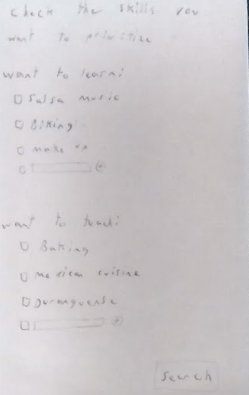 Check the skills you
want to prioritize
want to learn:
Salsa music
Biking
make up
want to teach:
Baking
mexican cuisine
Duranguense
Search